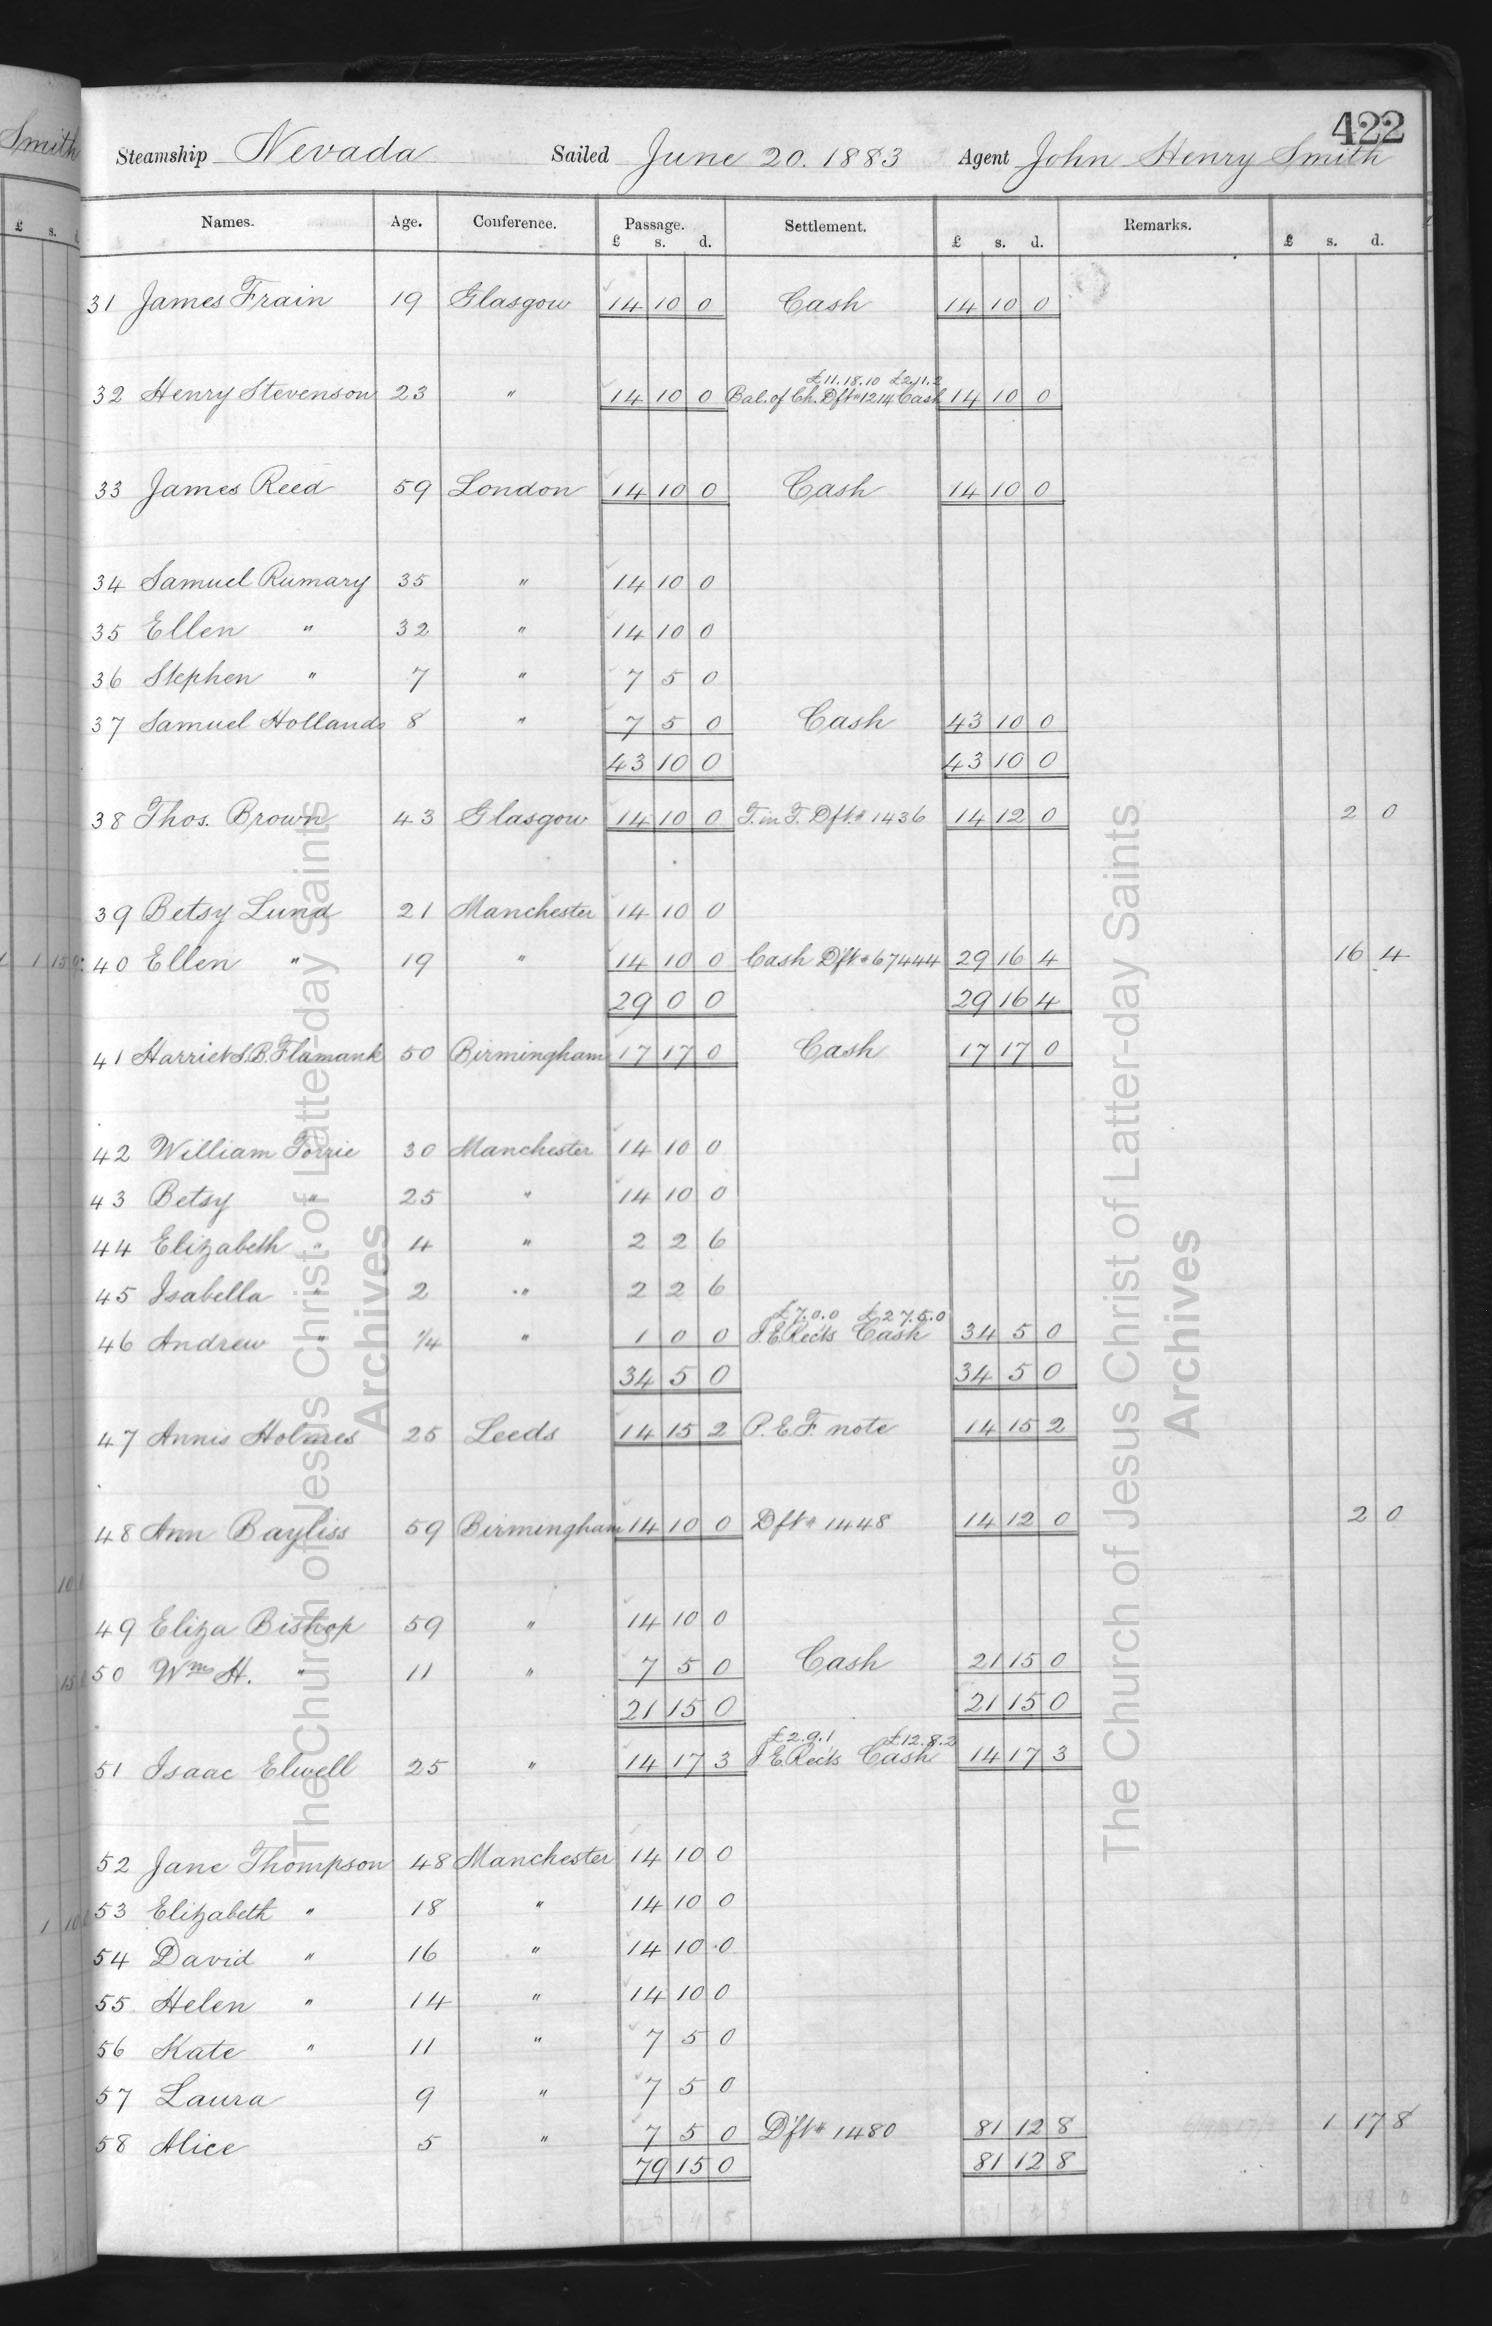 422
Steamship Nevada Sailed June 20. 1883 Agent John Henry Smith
Smith
Names. Age. Conference. Passage. Settlement. Remarks.
£ s. d. £ s. d. £ s. d.
£ s. d.
31 James Frain 19 Glasgow 14 10 0 Cash 14 10 0
£11.18.10 £2.11.2
32 Henry Stevenson 23 " 14 10 0 Bal. of Ch. Dft # 1214 Cash 14 10 0
33 James Reed 59 London 14 10 0 Cash 14 10 0
34 Samuel Rumary 35 " 14 10 0
35 Ellen " 32 " 14 10 0
36 Stephen " 7 " 7 5 0
37 Samuel Hollands 8 " 7 5 0 Cash 43 10 0
43 10 0 43 10 0
38 Thos. Brown 43 Glasgow 14 10 0 T. in T. Dft. # 1436 14 12 0 2 0
39 Betsy Lund 21 Manchester 14 10 0
40 Ellen " 19 " 14 10 0 Cash Dft # 67444 29 16 4 16 4
29 0 0 29 16 4
41 Harriet S. B. Flamank 50 Birmingham 17 17 0 Cash 17 17 0
42 William Torrie 30 Manchester 14 10 0
43 Betsy " 25 " 14 10 0
44 Elizabeth " 4 " 2 2 6
45 Isabella " 2 " 2 2 6
£7.0.0 £27.5.0
46 Andrew " 1/4 " 1 0 0 I. E. Rects Cash 34 5 0
34 5 0 34 5 0
47 Annis Holmes 25 Leeds 14 15 2 P. E. F. note 14 15 2
48 Ann Bayliss 59 Birmingham 14 10 0 Dft # 1448 14 12 0 2 0
49 Eliza Bishop 59 " 14 10 0
50 Wm H. " 11 " 7 5 0 Cash 21 15 0
21 15 0 21 15 0
£2.9.1 £12.8.2
51 Isaac Elwell 25 " 14 17 3 I. E. Rects Cash 14 17 3
52 Jane Thompson 48 Manchester 14 10 0
53 Elizabeth " 18 " 14 10 0
54 David " 16 " 14 10 0
55 Helen " 14 " 14 10 0
56 Kate " 11 " 7 5 0
57 Laura 9 " 7 5 0
58 Alice 5 " 7 5 0 Dft # 1480 81 12 8 1 17 8
79 15 0 81 12 8
The Church of Jesus Christ of Latter-day Saints
Archives
The Church of Jesus Christ of Latter-day Saints
Archives